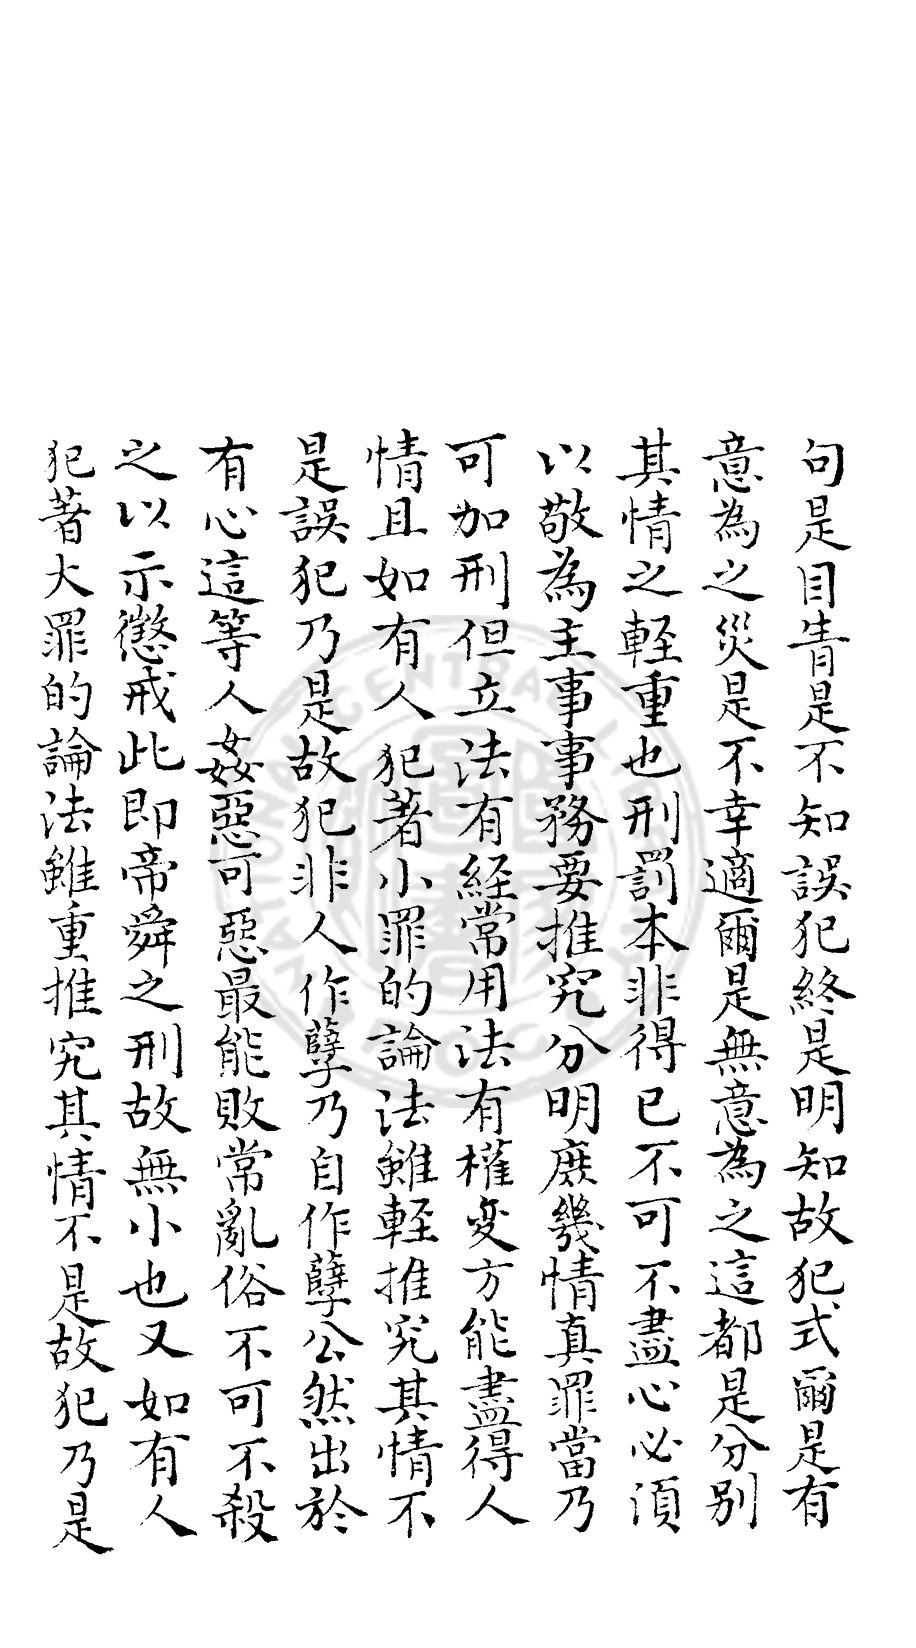 句是目眚是不知誤犯終是明知故犯式爾是有
意為之災是不幸適爾是無意為之這都是分別
其情之輕重也刑罰本非得已不可不盡心必須
以敬為主事事務要推究分明庶幾情真罪當乃
可加刑但立法有経常用法有權変方能盡得人
情且如有人犯著小罪的論法雖輕推究其情不
是誤犯乃是故犯非人作孽乃自作孽公然出於
有心這等人姦惡可惡最能敗常亂俗不可不殺
之以示懲戒此即帝舜之刑故無小也又如有人
犯著大罪的論法雖重推究其情不是故犯乃是